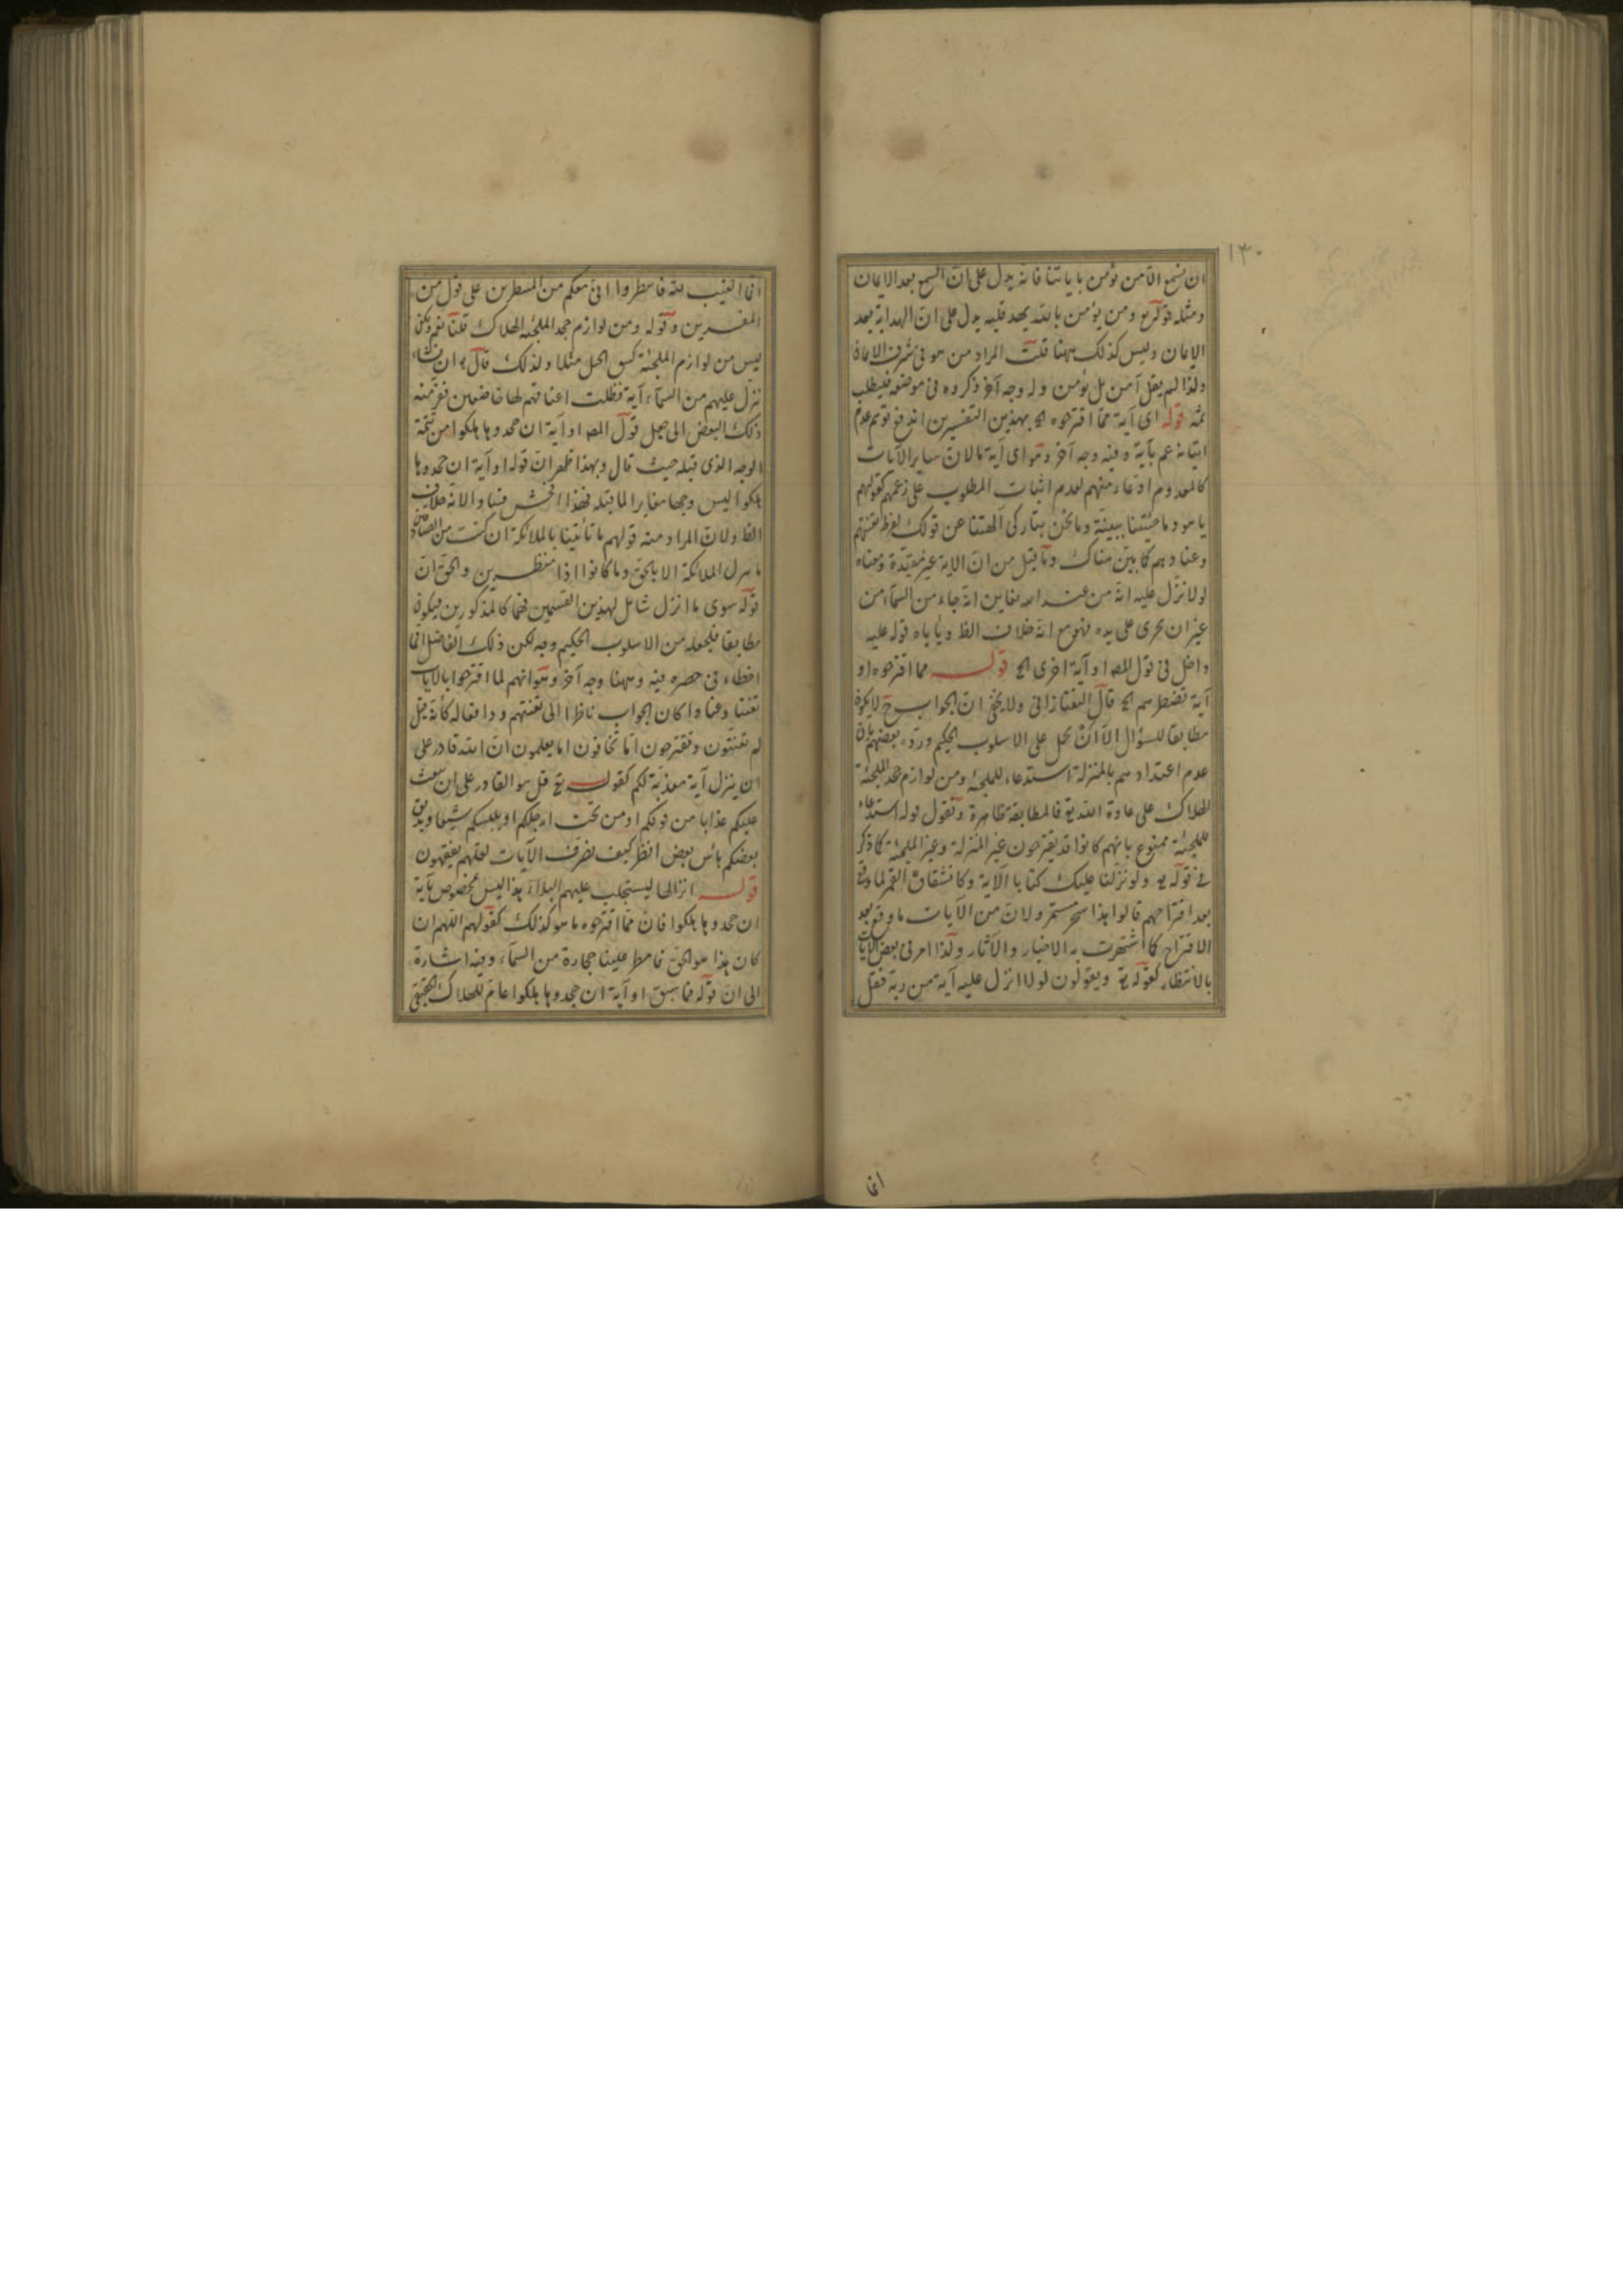 ١٣٠
ان تسمع الا من يؤمن بآياتنا فانه يدل على ان السمع بعد الايمان
ومثله قوله تع ومن يؤمن بالله يهد قلبه يدل على ان الهداية بعد
الايمان وليس كذلك ههنا قلت المراد من هو فى شرف الايمان
ولذا لم يقل آمن بل يؤمن وله وجه آخر ذكروه فى موضعه فليطلب
ثمه قوله اى آية مما اقترحوه الخ بهذين التفسيرين اندفع توهم عدم
اتيانه عم بآية وفيه وجه آخر وهو اى آية ما لان ساير الآيات
كالمعدوم ادعاء منهم لعدم اثبات المطلوب على زعمهم كقولهم
يا هود ما جئتنا ببينة وما نحن بتاركى آلهتنا عن قولك لفرط تعنتهم
وعنادهم كما بين هناك وما قيل من ان الاية غير مقيدة ومعناه
لولا نزل عليه انه من عند الله نعاين انه جاء من السماء من
غير ان يجرى على يده فهو مع انه خلاف الظ ويأباه قوله عليه
داخل فى قول المص او آية اخرى الخ قوله مما اقترحوه او
آية تضطرهم الخ قال التفتازانى ولا يخفى ان الجواب ح لا يكون
مطابقا للسؤال الا ان يحمل على الاسلوب الحكيم ورده بعضهم بان
عدم اعتدادهم بالمنزلة استدعاء للملجئه ومن لوازم جحد الملجئة
الهلاك على عادة الله تع فالمطابقة ظاهرة ونقول قوله استدعاء
للملجئة ممنوع بانهم كانوا قد يقترحون غير المنزلة وغير الملجئة كما ذكر
فى قوله تع ولو نزلنا عليك كتابا الآية وكانشقاق القمر لما وقع
بعد اقتراحهم قالوا هذا سحر مستمر ولان من الآيات ما وقع بعد
الاقتراح كما اشتهرت به الاخبار والآثار ولذا امر فى بعض الآيات
بالانتظار كقوله تع ويقولون لولا انزل عليه آية من ربه فقل
انما
انما الغيب لله فانتظروا انى معكم من المنتظرين على قول من
المفسرين وقوله ومن لوازم جحد الملجئه الهلاك قلنا نعم ولكن
ليس من لوازم الملجئة كنتق الجبل مثلا ولذلك قال تع ان نشاء
ننزل عليهم من السماء آية فظلت اعناقهم لها خاضعين ففر منه
ذلك البعض الى جعل قول المص او آية ان جحدوها هلكوا من تتمة
الوجه الذى قبله حيث قال وبهذا ظهر ان قوله او آية ان جحدوها
هلكوا ليس وجها مغايرا لما قبله فهذا افحش فسادا لانه خلاف
الظ ولان المراد منه قولهم ما تأتينا بالملائكة ان كنت من الصادقين
ما ننزل الملائكة الا بالحق وما كانوا اذا منظرين والحق ان
قوله سوى ما انزل شامل لهذين القسمين فهما كالمذكورين فيكون
مطابقا فلجعله من الاسلوب الحكيم وجه لكن ذلك الفاضل انما
اخطاء فى حصره فيه وههنا وجه آخر وهو انهم لما اقترحوا بالآيات
تعنتا وعنادا كان الجواب ناظرا الى تعنتهم ودافعا له كأنه قيل
لم تتعنتون وتقترحون اما تخافون اما يعلمون ان الله قادر على
ان ينزل آية معذبة لكم كقوله تع قل هو القادر على ان يبعث
عليكم عذابا من فوقكم او من تحت ارجلكم او يلبسكم شيعا ويذيق
بعضكم بأس بعض انظر كيف نصرف الآيات لعلهم يفقهون
قوله انزالها ليستجلب عليهم البلاء هذا ليس مخصوص بآية
ان جحدوها هلكوا فان مما اقترحوه ما هو كذلك كقولهم اللهم ان
كان هذا هو الحق فامطر علينا حجارة من السماء وفيه اشارة
الى ان قوله فما سبق او آية ان جحدوها هلكوا عام للهلاك الحقيقى